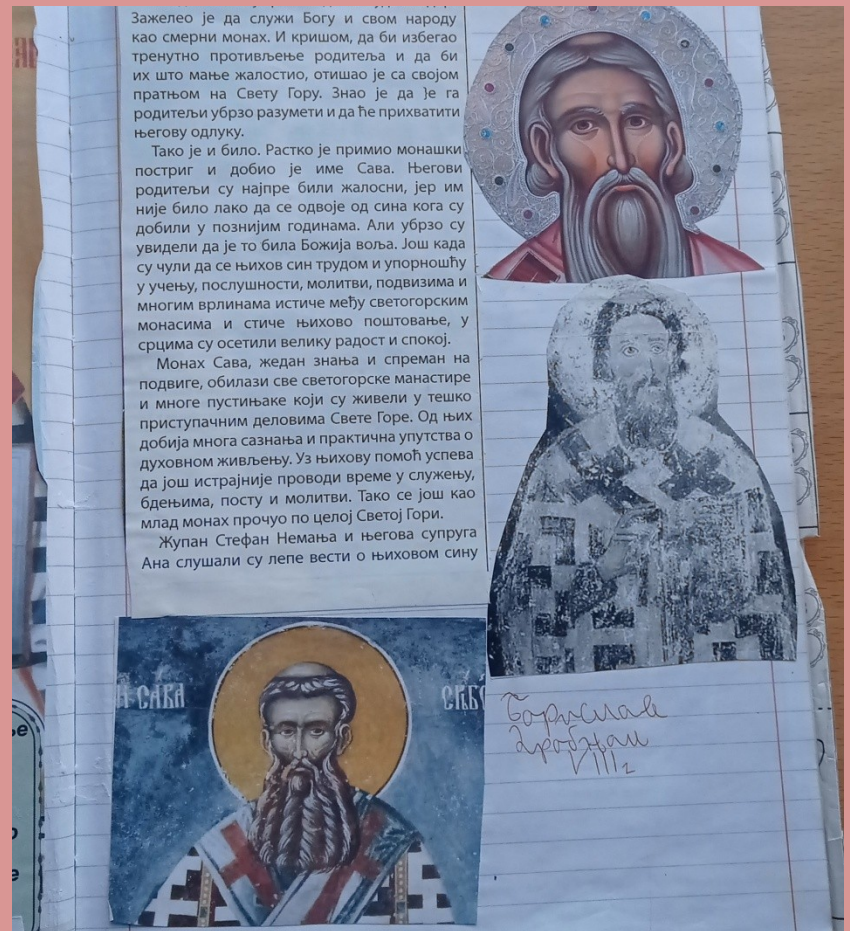 Зажелео је да служи Богу и свом народу
као смерни монах. И кришом, да би избегао
тренутно противљење родитеља и да би
их што мање жалостио, отишао је са својом
пратњом на Свету Гору. Знао је да ће га
родитељи убрзо разумети и да ће прихватити
његову одлуку.
Тако је и било. Растко је примио монашки
постриг и добио је име Сава. Његови
родитељи су најпре били жалосни, јер им
није било лако да се одвоје од сина кога су
добили у познијим годинама. Али убрзо су
увидели да је то била Божија воља. Још када
су чули да се њихов син трудом и упорношћу
у учењу, послушности, молитви, подвизима и
многим врлинама истиче међу светогорским
монасима и стиче њихово поштовање, у
срцима су осетили велику радост и спокој.
Монах Сава, жедан знања и спреман на
подвиге, обилази све светогорске манастире
и многе пустињаке који су живели у тешко
приступачним деловима Свете Горе. Од њих
добија многа сазнања и практична упутства о
духовном живљењу. Уз њихову помоћ успева
да још истрајније проводи време у служењу,
бдењима, посту и молитви. Тако се још као
млад монах прочуо по целој Светој Гори.
Жупан Стефан Немања и његова супруга
Ана слушали су лепе вести о њиховом сину
САВА
Борислав
VIII2